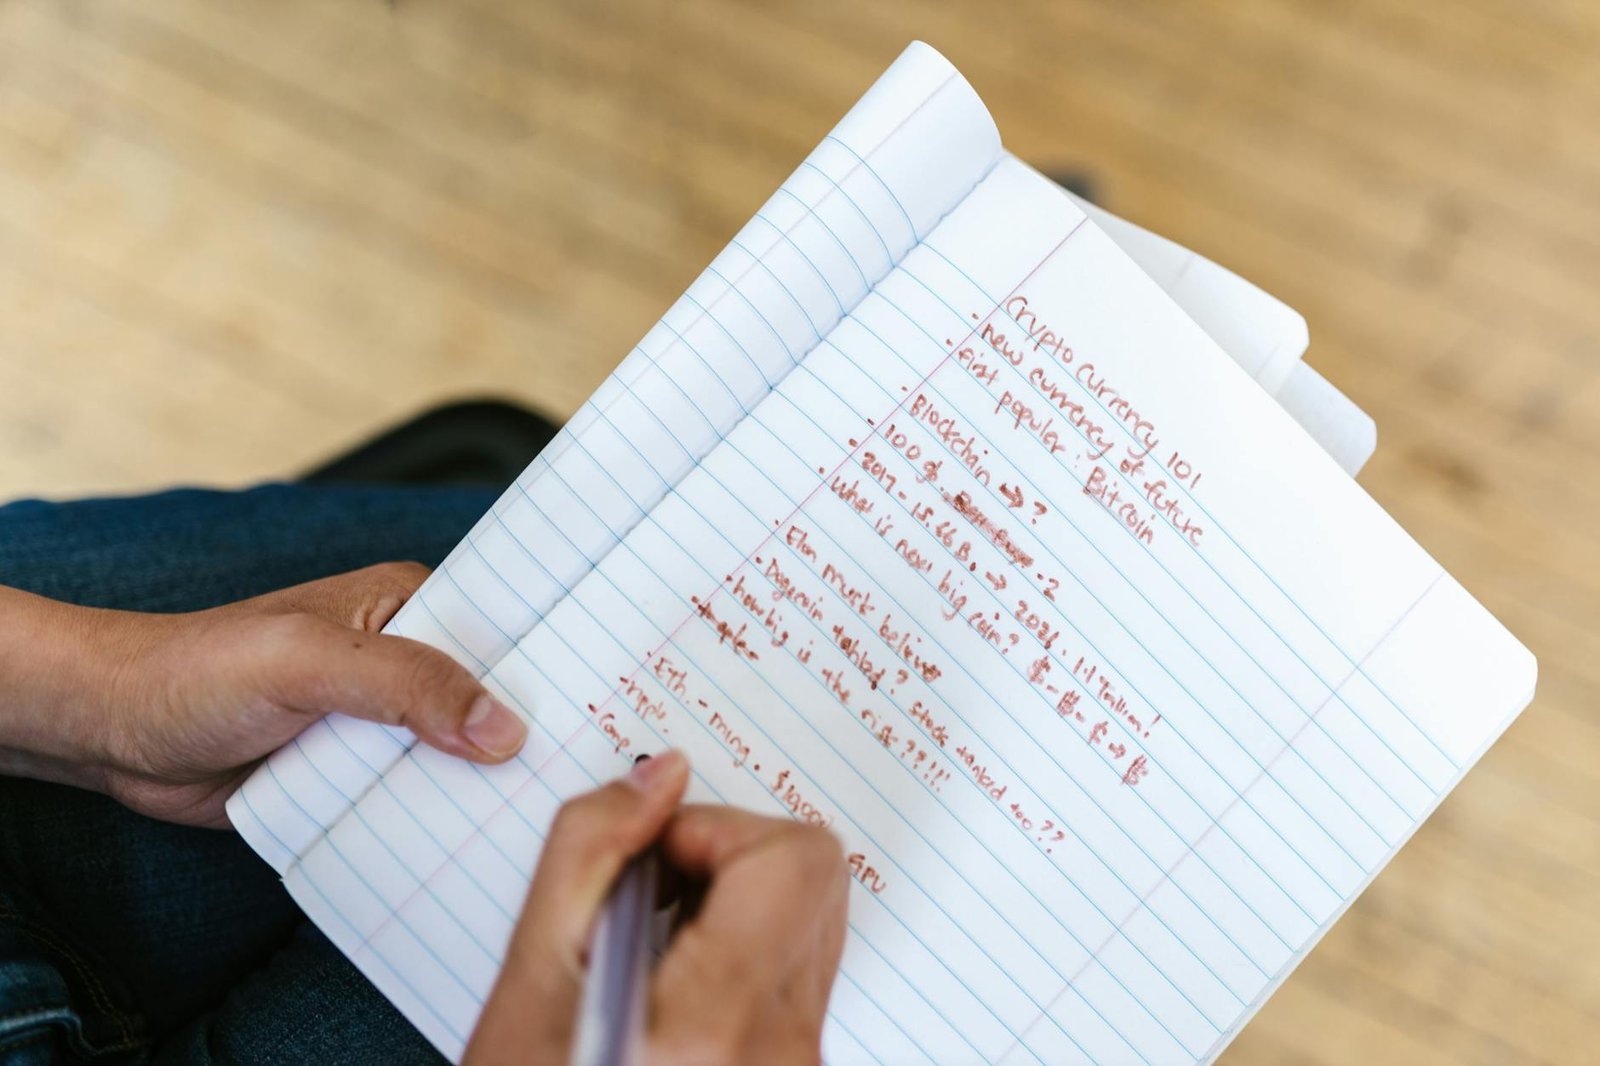 Crypto Currency 101
- new currency of future
- first popular: Bitcoin
- Blockchain → ?
- 100 gt. -2
- 2017 - 15.66B. → 2021. 1.1 Trillion!
- What is next big coin? $ - $ - $ → $
- Elon musk believes
- Dogecoin tanked? stock tanked too??
- how big is the risk????!!!
- Eth. - mining. $10,000 GPU
- ripple.
- comp.